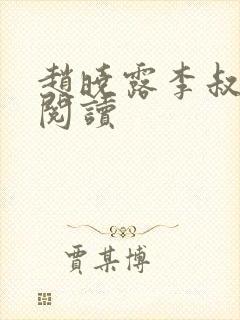 趙曉露李叔
閱讀
賈某博